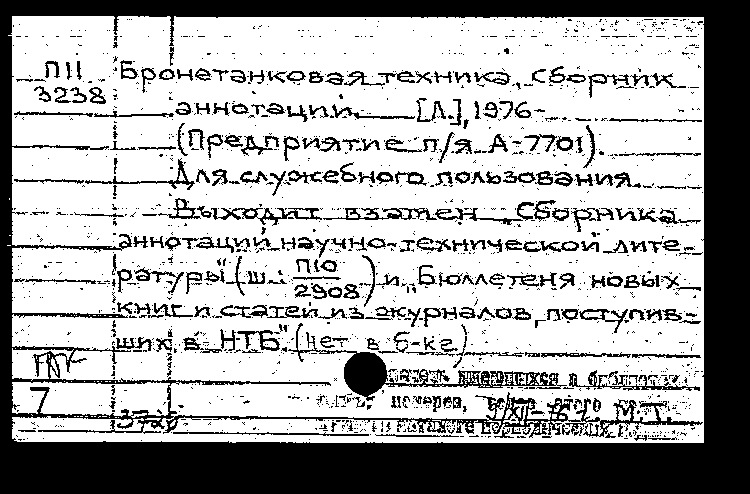 П11
3238
Бронетанковая техника. Сборник
аннотаций. [Л.], 1976-
(Предприятие п/я А-7701).
Для служебного пользования.
Выходит взамен „Сборника
аннотаций научно-технической лите-
ратуры" (ш.: П10/2908) и „Бюллетеня новых
книг и статей из журналов, поступив-
ших в НТБ". (нет в б-ке)
7
372
имеющихся в библиотеке
номеров, 9/XII-76 г. М.Т.